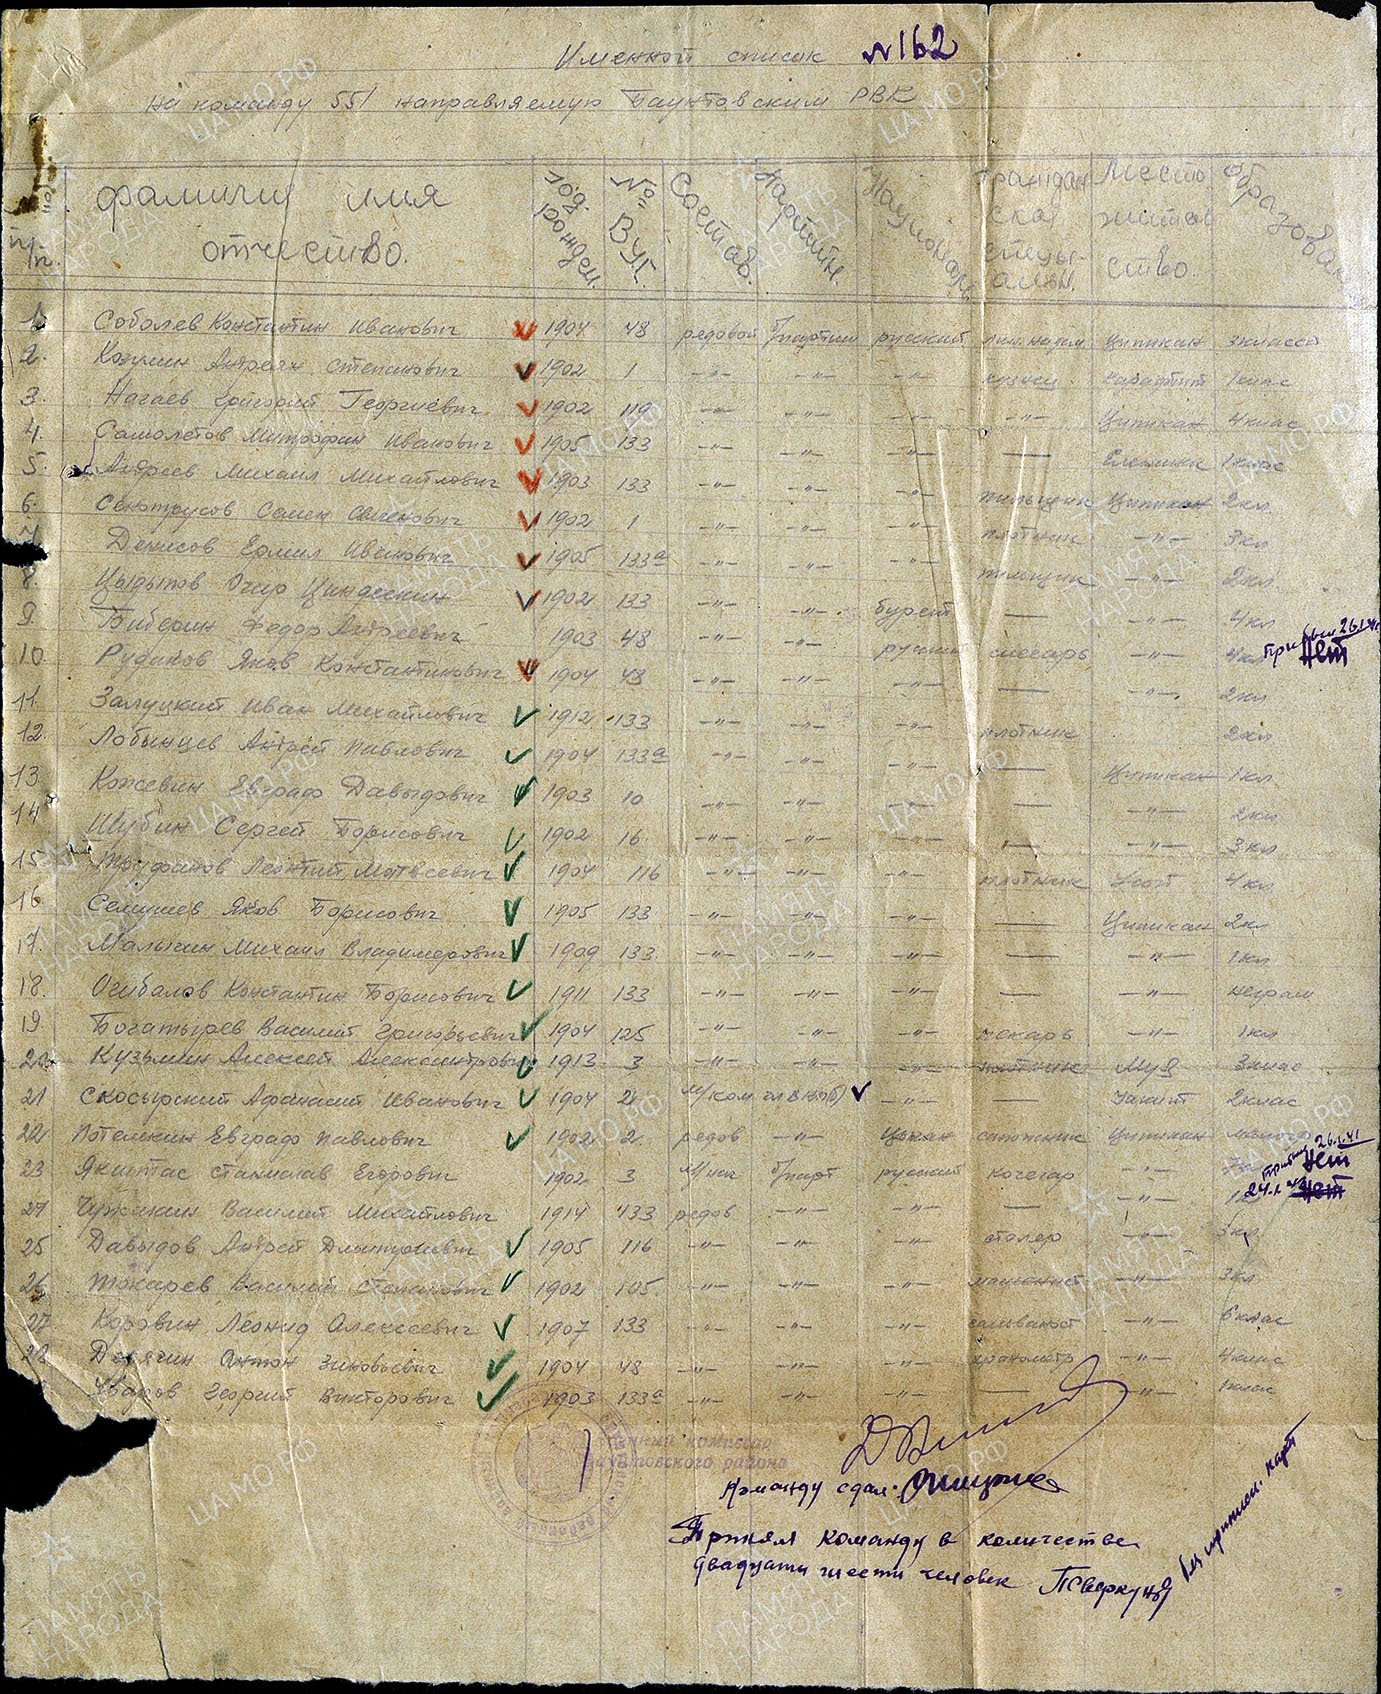 Именной список №162
на команду 551 направляемую Баунтовским РВК
№ по п/п. Фамилия имя отчество. год рожден. №№ ВУС. Состав. Партийн. Националь. Граждан ская специ- альн. Место житель ство. Образован
1 Соболев Константин Иванович 1904 48 рядовой б/партии русский Ципикан 3 класса
2. Андреян Степанович 1902 1 -"- -"- -"- кузнец 1 клас
3. Нагаев Григорий Георгиевич 1902 119 -"- -"- -"- -"- Ципикан 4 клас
4. Самолетов Митрофан Иванович 1905 133 -"- -"- -"- — 1 клас
5. Андреев Михаил Михайлович 1903 133 -"- -"- -"- пильщик Ципикан 2 кл
6. Сенотрусов Семен Семенович 1902 1 -"- -"- -"- плотник -"- 3 кл
7 Денисов Ермил Иванович 1905 133а -"- -"- -"- пильщик -"- 2 кл
8. Цыдыпов Очир 1902 133 -"- -"- бурят — -"- 4 кл
9. Федор Андреевич 1903 48 -"- -"- русский слесарь -"- 4 кл Прибыл 26.1.41 Нет
10. Рудаков Яков Константинович 1904 48 -"- -"- -"- — -"- 2 кл
11. Залуцкий Иван Михайлович 1912 133 -"- -"- -"- плотник 2 кл
12. Лобынцев Андрей Павлович 1904 133а -"- -"- — Ципикан 1 кл
13. Кожевин Евграф Давыдович 1903 10 -"- -"- -"- — -"- 2 кл
14 Шубин Сергей Борисович 1902 16 -"- -"- -"- — -"- 3 кл
15 Труфанов Леонтий Матвеевич 1904 116 -"- -"- -"- плотник 4 кл
16 Яков Борисович 1905 133 -"- -"- -"- — Ципикан 2 кл
17. Малыгин Михаил Владимирович 1909 133 -"- -"- -"- — -"- 1 кл
18. Огибалов Константин Борисович 1911 133 -"- -"- -"- — -"- неграм
19 Богатырев Василий Григорьевич 1904 125 -"- -"- -"- пекарь -"- 1 кл
20 Кузьмин Алексей Александрович 1913 3 -"- -"- -"- плотник Муя 3 клас
21 Скосырский Афанасий Иванович 1904 2 М/ком чл ВКП(б) -"- — 2 клас
22 Потемкин Евграф Павлович 1902 2 рядов -"- сапожник Ципикан
23 Якштас Станислав Егорович 1902 3 б/парт русский кочегар -"- Прибыл 26.1.41 Нет
24 Василий Михайлович 1914 133 рядов -"- -"- — -"- 24.1 Нет
25 Давыдов Андрей Дмитриевич 1905 116 -"- -"- -"- столяр -"- 3 кл
26 Токарев Василий Степанович 1902 105 -"- -"- -"- машинист -"- 3 кл
27 Коровин Леонид Алексеевич 1907 133 -"- -"- -"- -"- 6 клас
28 Антон Зиновьевич 1904 48 -"- -"- -"- -"- 4 клас
Уваров Георгий Викторович 1903 133а -"- -"- -"- — -"- 1 клас
Военный комиссар
Баунтовского района
Команду сдал.
Принял команду в количестве
двадцати шести человек